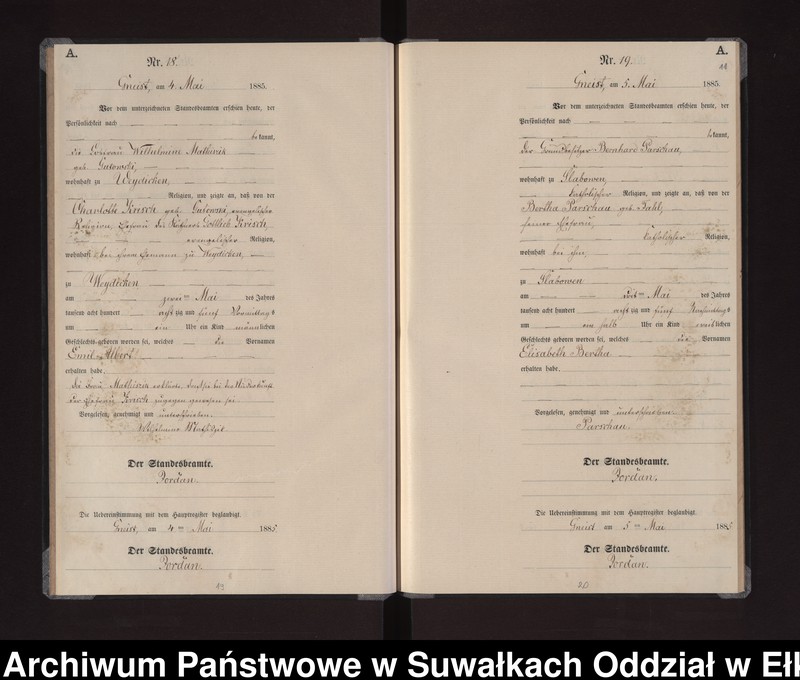 A.
Nr. 18.
Gneist, am 4. Mai 1885.
Vor dem unterzeichneten Standesbeamten erschien heute, der
Persönlichkeit nach
bekannt,
die Losfrau Wilhelmine
geb. Gutowski,
wohnhaft zu Weydicken,
Religion, und zeigte an, daß von der
Charlotte Krisch geb. Gutowski, evangelischer
Religion, Ehefrau des Gottlieb Krisch,
evangelischer Religion,
wohnhaft bei ihrem Ehemann zu Weydicken,
zu Weydicken
am zwei ten Mai des Jahrs
tausend acht hundert achtzig und fünf Vormittags
um ein Uhr ein Kind männlichen
Geschlechts geboren worden sei, welches die Vornamen
Emil Albert
erhalten habe.
die Frau erklärte, daß sie bei der Niederkunft
der Ehefrau Krisch zugegen gewesen sei.
Vorgelesen, genehmigt und unterschrieben.
Wilhelmine
Der Standesbeamte.
Jordan.
Die Uebereinstimmung mit dem Hauptregister beglaubigt.
Gneist, am 4 ten Mai 1885
Der Standesbeamte.
Jordan.
A.
Nr. 19.
Gneist, am 5. Mai 1885.
Vor dem unterzeichneten Standesbeamten erschien heute, der
Persönlichkeit nach
bekannt,
der Grundbesitzer Bernhard Parschau,
wohnhaft zu Slabowen,
katholischer Religion, und zeigte an, daß von der
Bertha Parschau geb.
seiner Ehefrau,
katholischer Religion,
wohnhaft bei ihm,
zu Slabowen
am drit ten Mai des Jahrs
tausend acht hundert achtzig und fünf Nachmittags
um ein halb Uhr ein Kind weiblichen
Geschlechts geboren worden sei, welches die Vornamen
Elisabeth Bertha
erhalten habe.
Vorgelesen, genehmigt und unterschrieben
Parschau.
Der Standesbeamte.
Jordan.
Die Uebereinstimmung mit dem Hauptregister beglaubigt.
Gneist am 5 ten Mai 1885
Der Standesbeamte.
Jordan.
Archiwum Państwowe w Suwałkach Oddział w Ełk